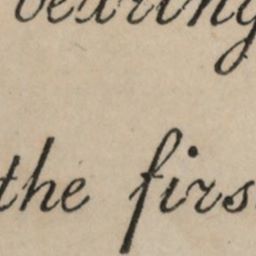 bearing
the firs